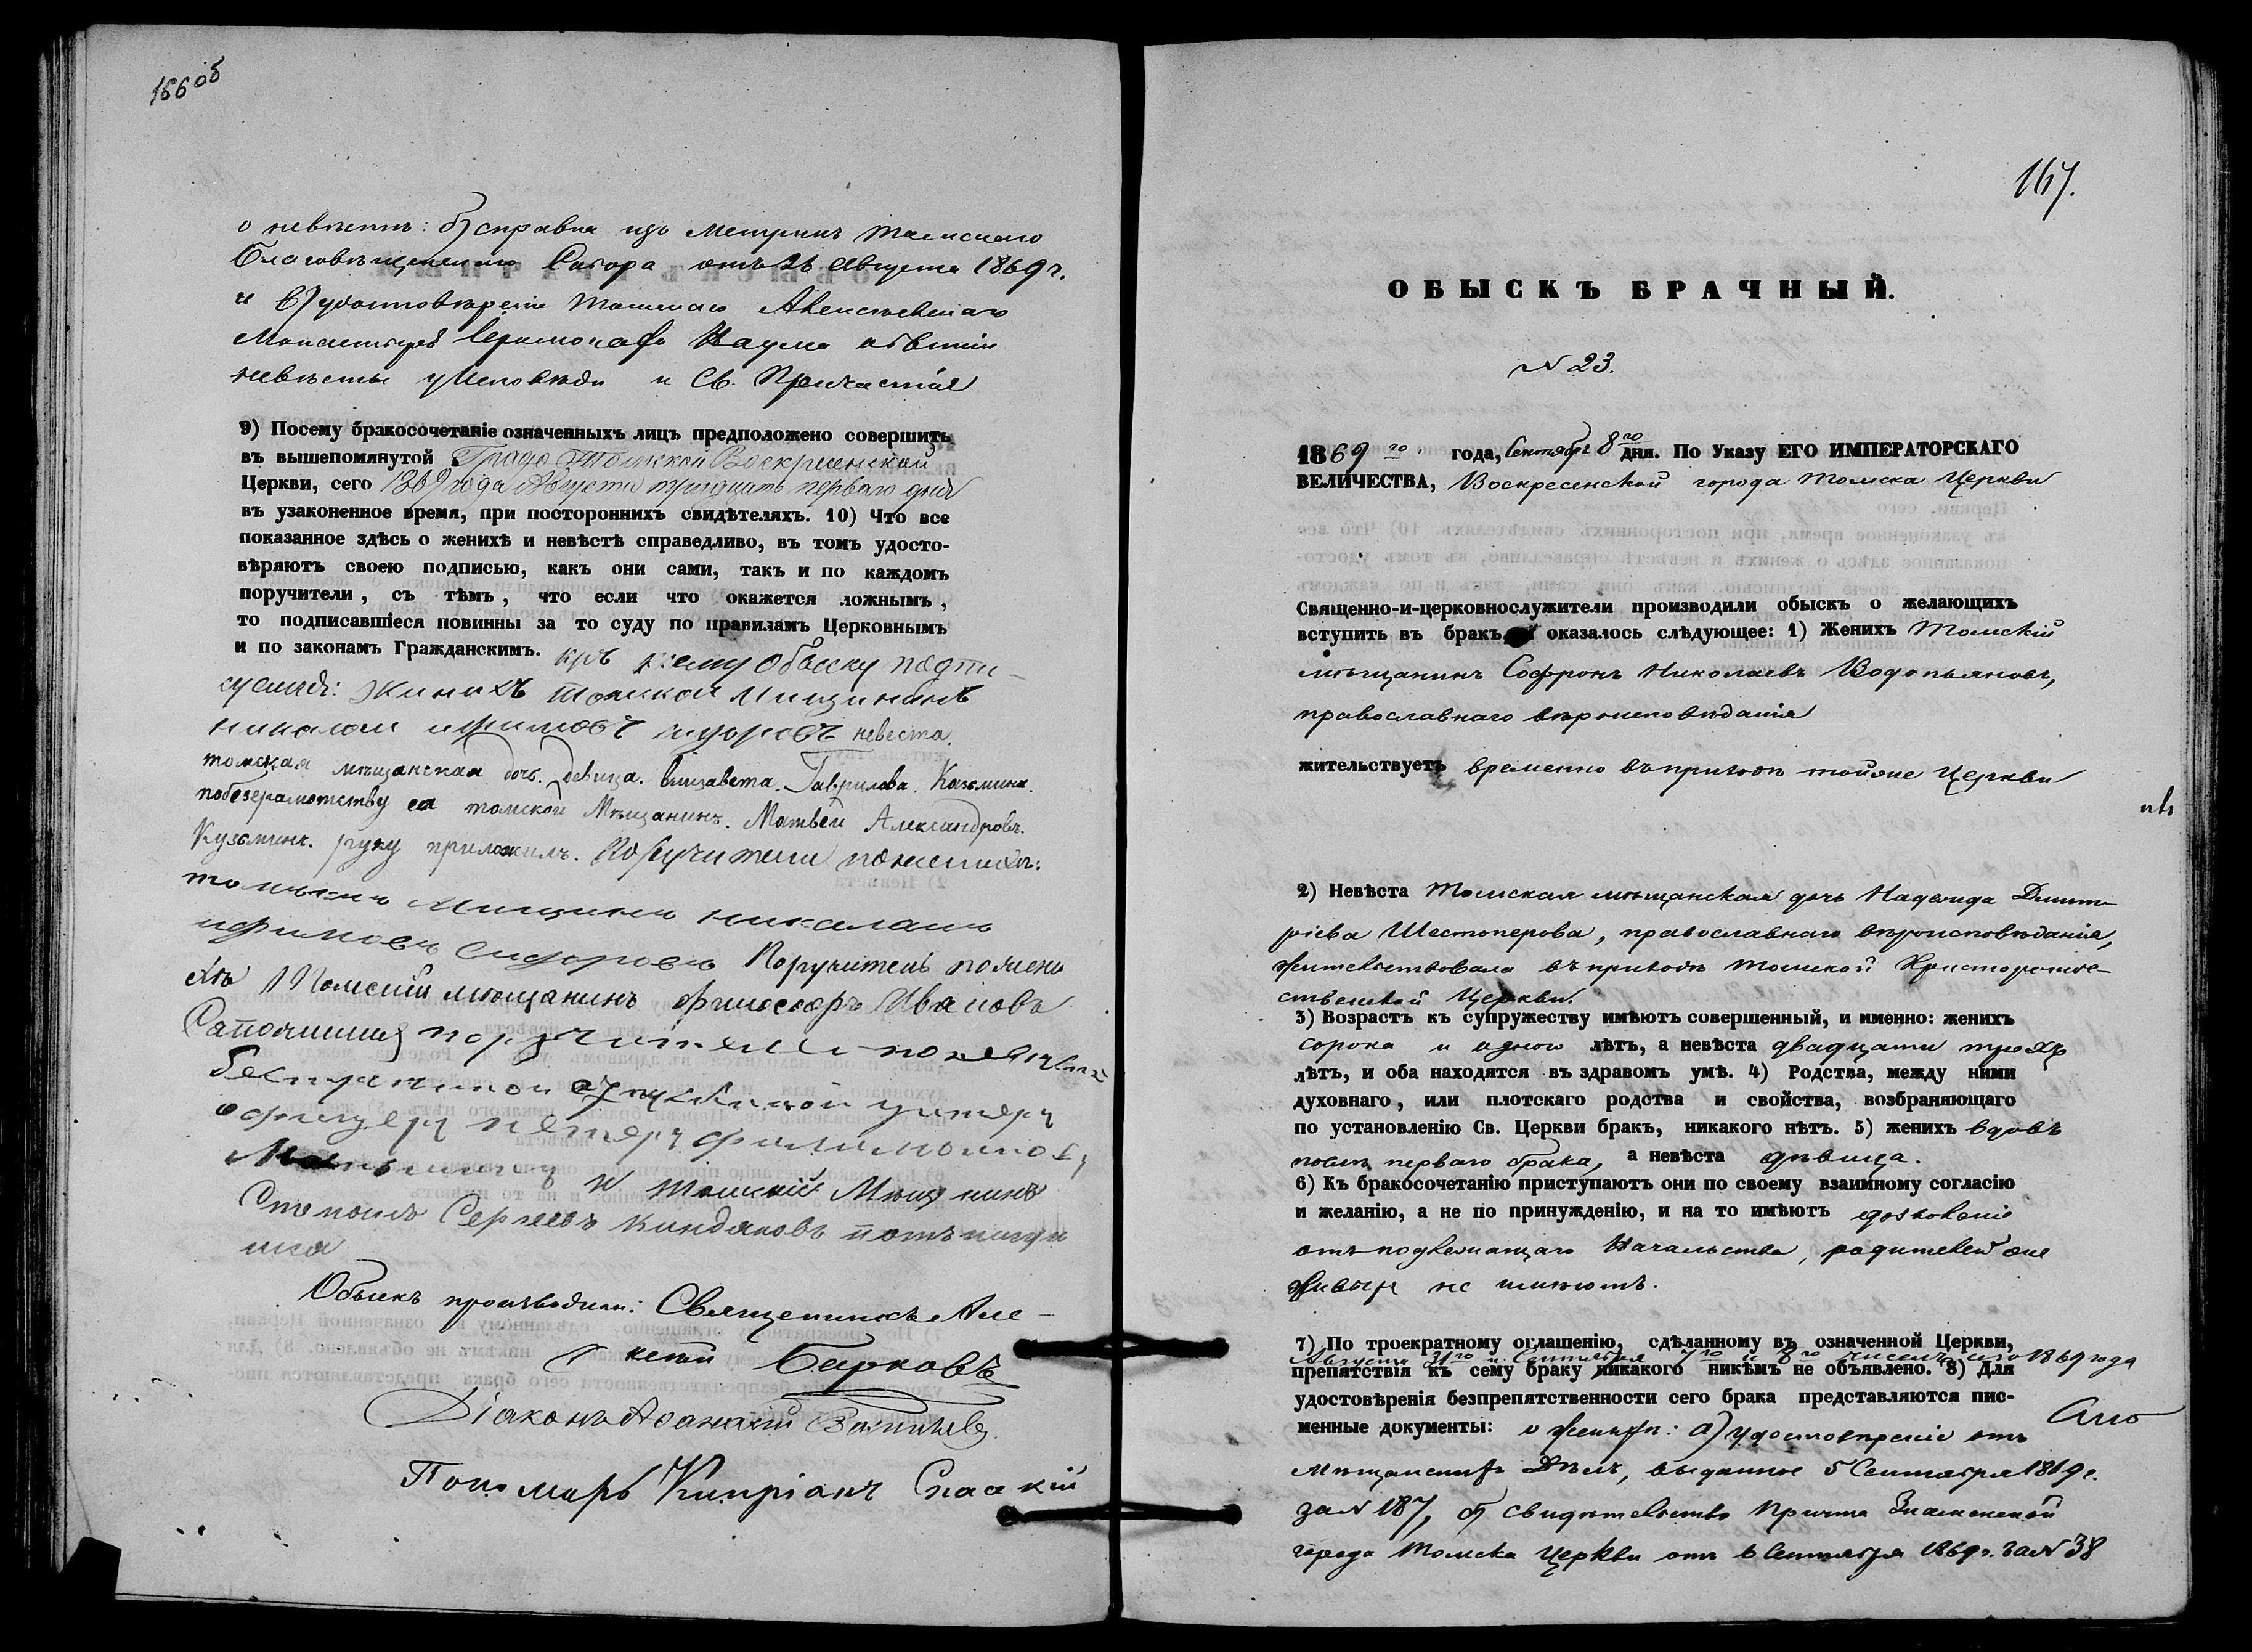 166 об
о невѣстѣ: б) справка изъ Метрикъ Томскаго
Благовѣщенскаго Собора отъ 26 Августа 1869 г.
и в) удостовѣреніе Томскаго Алексѣевскаго
Монастыря Іеромонаха Наума о бытіи
невѣсты у Исповѣди и Св. Причастія
9) Посему бракосочетаніе означенныхъ лицъ предположено совершить
въ вышепомянутой Градо Томской Воскресенской
Церкви, сего 1869 года Августа тридцать перваго дня
въ узаконенное время, при постороннихъ свидѣтеляхъ. 10) Что все
показанное здѣсь о женихѣ и невѣстѣ справедливо, въ томъ удосто-
вѣряютъ своею подписью, какъ они сами, такъ и по каждомъ
поручители, съ тѣмъ, что если что окажется ложнымъ,
то подписавшіеся повинны за то суду по правиламъ Церковнымъ
и по законамъ Гражданскимъ. къ сему обыску подпи-
Женихъ томской мищининъ
николаи невеста.
томская мѣщанская доч. девица. Елизавета. Гаврилова. Казьмина.
побезграмотству ея томской Мѣщанинъ. Матвѣй Александровъ.
Кузьминъ. руку приложилъ. Поручители по женихѣ:
мищининъ
Сидоровъ Поручитель по жени
хѣ Томскій мѣщанинъ Ивановъ
поручители по невѣсте
унтеръ
офицеръ петеръ филимоновъ
и томскій Мѣщенинъ
Степанъ Сергеевъ Киндяковъ
Обыскъ производили: Священникъ Але-
ксѣй Барковъ
Діаконъ Афанасій
Пономарь Кипріанъ Спаскій
167.
ОБЫСКЪ БРАЧНЫЙ.
N 23.
1869 го года, Сентябр 8 го дня. По Указу ЕГО ИМПЕРАТОРСКАГО
ВЕЛИЧЕСТВА, Воскресенской города Томска Церкви
Священно-и-церковнослужители производили обыскъ о желающихъ
вступить въ бракъ и оказалось слѣдующее: 1) Женихъ Томскій
мѣщанинъ Софронъ Николаевъ Водопьяновъ,
православнаго вѣроисповѣданія
жительствуетъ временно въ приходѣ тойже Церкви
2) Невѣста Томская мѣщанская дочь Надежда Димит-
ріева Шестоперова, православнаго вѣроисповѣданія,
жительствовала въ приходѣ Томской Христорожде-
ственской Церкви.
3) Возрастъ къ супружеству имѣютъ совершенный, и именно: женихъ
сорока и одного лѣтъ, а невѣста двадцати трехъ
лѣтъ, и оба находятся въ здравомъ умѣ. 4) Родства, между ними
духовнаго, или плотскаго родства и свойства, возбраняющаго
по установленію Св. Церкви бракъ, никакого нѣтъ. 5) женихъ вдовъ
послѣ перваго брака, а невѣста дѣвица.
6) Къ бракосочетанію приступаютъ они по своему взаимному согласію
и желанію, а не по принужденію, и на то имѣютъ дозволеніе
отъ подлежащаго Начальства, родителей же
живыхъ не имѣютъ.
7) По троекратному оглашенію, сдѣланному въ означенной Церкви,
Августа 31 го и Сентября 7 го и 8 го чиселъ сего 1869 года
препятствія къ сему браку никакого никѣмъ не объявлено. 8) Для
удостовѣренія безпрепятственности сего брака представляются пис-
менные документы: о женихѣ: а) удостовѣреніе отъ
Мѣщанскихъ Дѣлъ, выданное 5 Сентября 1869 г.
за N 187, б) свидѣтельство Причта Знаменской
города Томска Церкви отъ 6 Сентября 1869 г. за N 38